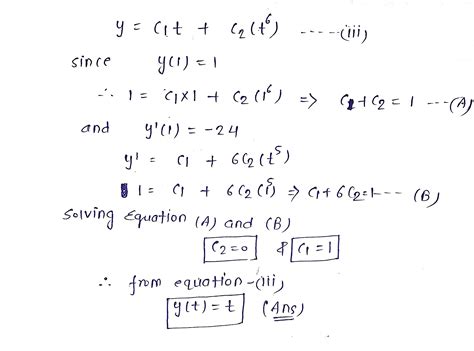 y = c₁t + c₂(t⁶) -----(iii)
since y(1) = 1
∴ 1 = c₁×1 + c₂(1⁶) => c₁+c₂ = 1 ---(A)
and y'(1) = -24
y' = c₁ + 6c₂(t⁵)
1 = c₁ + 6c₂(1)⁵ => c₁+6c₂=1--- (B)
Solving Equation (A) and (B)
c₂=0 & c₁=1
∴ from equation-(iii)
y(t) = t (Ans)